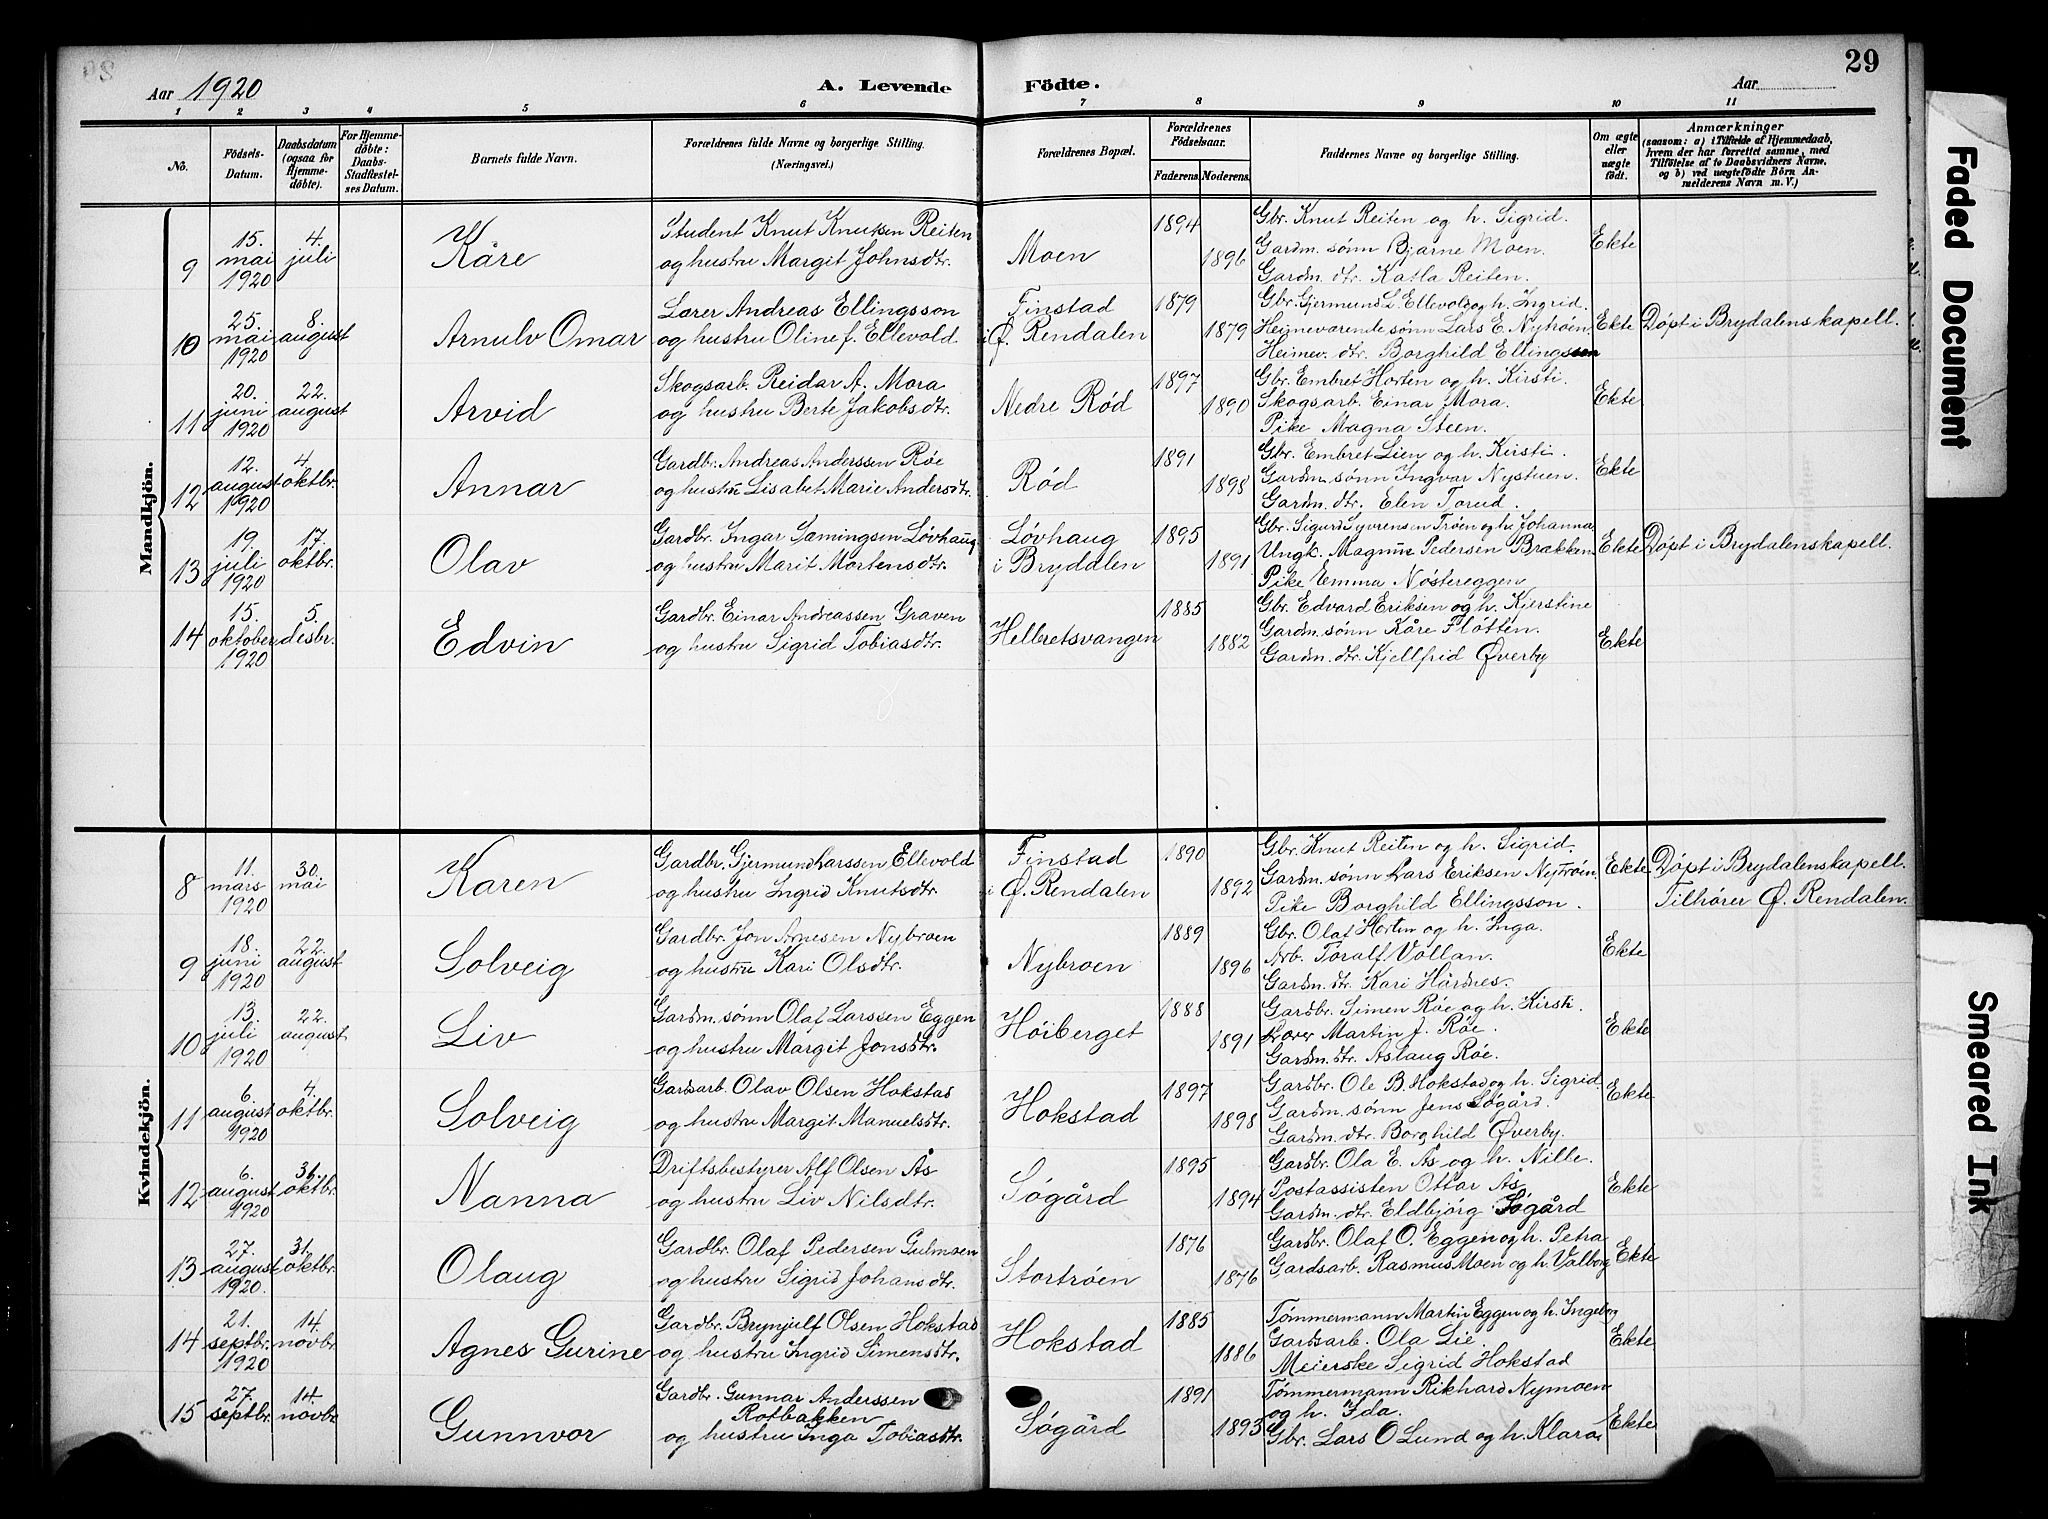 29
Aar 1920
A. Levende Födte.
Aar
1 2 3 4 5 6 7 8 9 10 11
No.
Födsels-Datum.
Daabsdatum (ogsaa for Hjemme-döbte).
For Hjemme-döbte: Daabs-Stadfæstel-ses Datum.
Barnets fulde Navn.
Forældrenes fulde Navne og borgerlige Stilling. (Næringsvei.)
Forældrenes Bopæl.
Forældrenes Födselsaar.
Faderens. Moderens.
Faddernes Navne og borgerlige Stilling.
Om ægte eller uægte födt.
Anmærkninger
(saasom: a) i Tilfælde af Hjemmedaab, hvem der har forrettet samme, med Tilföielse af to Daabsvidners Navne. og b) ved uægtefödte Börn An-melderens Navn m. V.)
Mandkjön.
9 15. mai 1920 4. juli Kåre
Student Knut Knutsen Reiten
og hustru Margit Johnsdtr.
Moen 1894 1896
Gbr. Knut Reiten og h. Sigrid.
Gardm. sønn Bjarne Moen.
Gardm. dtr. Katla Reiten.
Ekte
10 25. mai 1920 8. august Arnulv Omar
Lærer Andreas Ellingsson
og hustru Oline f. Ellevold
Finstad
i Ø. Rendalen 1879 1879
Gbr. Gjermund L. Ellevold og h. Ingrid.
Heimeværende sønn Lars E. Nytrøen
Heimev. dtr. Borghild Ellingsson
Ekte Døpt i Brydalens kapell.
11 20. juni 1920 22. august Arvid
Skogsarb. Reidar A. Mora
og hustru Berte Jakobsdtr.
Nedre Rød 1897 1890
Gbr. Embret Horten og h. Kirsti.
Skogsarb. Einar Mora.
Pike Magna Steen.
Ekte
12 12. august 1920 4. oktbr. Annar
Gardbr. Andreas Anderssen Røe
og hustru Lisabet Marie Andersdtr.
Rød 1891 1898
Gbr. Embret Lien og h. Kirsti.
Gardm. sønn Ingvar Nystuen.
Gardm. dtr. Elen Torud.
Ekte
13 19. juli 1920 17. oktbr. Olav
Gardbr. Ingar Sæmingsen Løvhaug
og hustru Marit Mortensdtr.
Løvhaug
i Brydalen 1895 1891
Gbr. Sigurd Syversen Trøen og h. Johanna
Ungk. Magnus Pedersen Brækken
Pike Emma Nøstereggen
Ekte Døpt i Brydalens kapell.
14 15. oktober 1920 5. desbr. Edvin
Gardbr. Einar Andreassen Graven
og hustru Sigrid Tobiasdtr.
Helbretsvangen 1885 1882
Gbr. Edvard Eriksen og h. Kjerstine
Gardm. sønn Kåre Fløtten.
Gardm. dtr. Kjellfrid Øverby
Ekte
Kvindekjön.
8 11. mars 1920 30. mai Karen
Gardbr. Gjermund Larssen Ellevold
og hustru Ingrid Knutsdtr.
Finstad
i Ø. Rendalen 1890 1892
Gbr. Knut Reiten og h. Sigrid.
Gardm. sønn Lars Eriksen Nytrøen
Pike Borghild Ellingsson.
Ekte Døpt i Brydalens kapell.
Tilhører Ø. Rendalen.
9 18. juni 1920 22. august Solveig
Gardbr. Jon Arnesen Nybroen
og hustru Kari Olsdtr.
Nybroen 1889 1896
Gbr. Olaf Horten og h. Inga.
Arb. Toralf Vollan.
Gardm. dtr. Kari Hårdnes.
Ekte
10 13. juli 1920 22. august Liv
Gardm. sønn Olaf Larssen Eggen
og hustru Margit Jonsdtr.
Høiberget 1888 1891
Gardbr. Simen Røe og h. Kirsti.
Lærer Martin J. Røe.
Gardm. dtr. Aslaug Røe.
Ekte
11 6. august 1920 4. oktbr. Solveig
Gardsarb. Olav Olsen Hokstad
og hustru Margit Manuelsdtr.
Hokstad 1897 1898
Gardbr. Ole B. Hokstad og h. Sigrid.
Gardm. sønn Jens Søgård.
Gardm. dtr. Borghild Øverby.
Ekte
12 6. august 1920 31. oktbr. Nanna
Driftsbestyrer Alf Olsen Ås
og hustru Liv Nilsdtr.
Søgård 1895 1894
Gardbr. Ola E. Ås og h. Nille.
Postassisten Ottar Ås
Gardm. dtr. Eldbjørg Søgård
Ekte
13 27. august 1920. 31. oktbr. Olaug
Gardbr. Olaf Pedersen Gulmoen
og hustru Sigrid Johansdtr.
Stortrøen 1876 1876
Gardbr. Olaf O. Eggen og h. Petra
Gardsarb. Rasmus Moen og h. Valborg
Ekte
14 21. septbr. 1920 14. novbr. Agnes Gurine
Gardbr. Brynjulf Olsen Hokstad
og hustru Ingrid Simensdtr.
Hokstad 1885 1886
Tømmermann Martin Eggen og h. Ingeborg
Gardsarb. Ola Lie.
Meierske Sigrid Hokstad
Ekte
15 27. septbr. 14. novbr Gunnvor
Gardbr. Gunnar Anderssen
Rotbakken
og hustru Inga Tobiasdtr.
Søgård 1891 1893
Tømmermann Rikhard Nymoen
og h. Ida.
Gbr. Lars O Lund og h. Klara.
Ekte
Faded Document
Smeared Ink